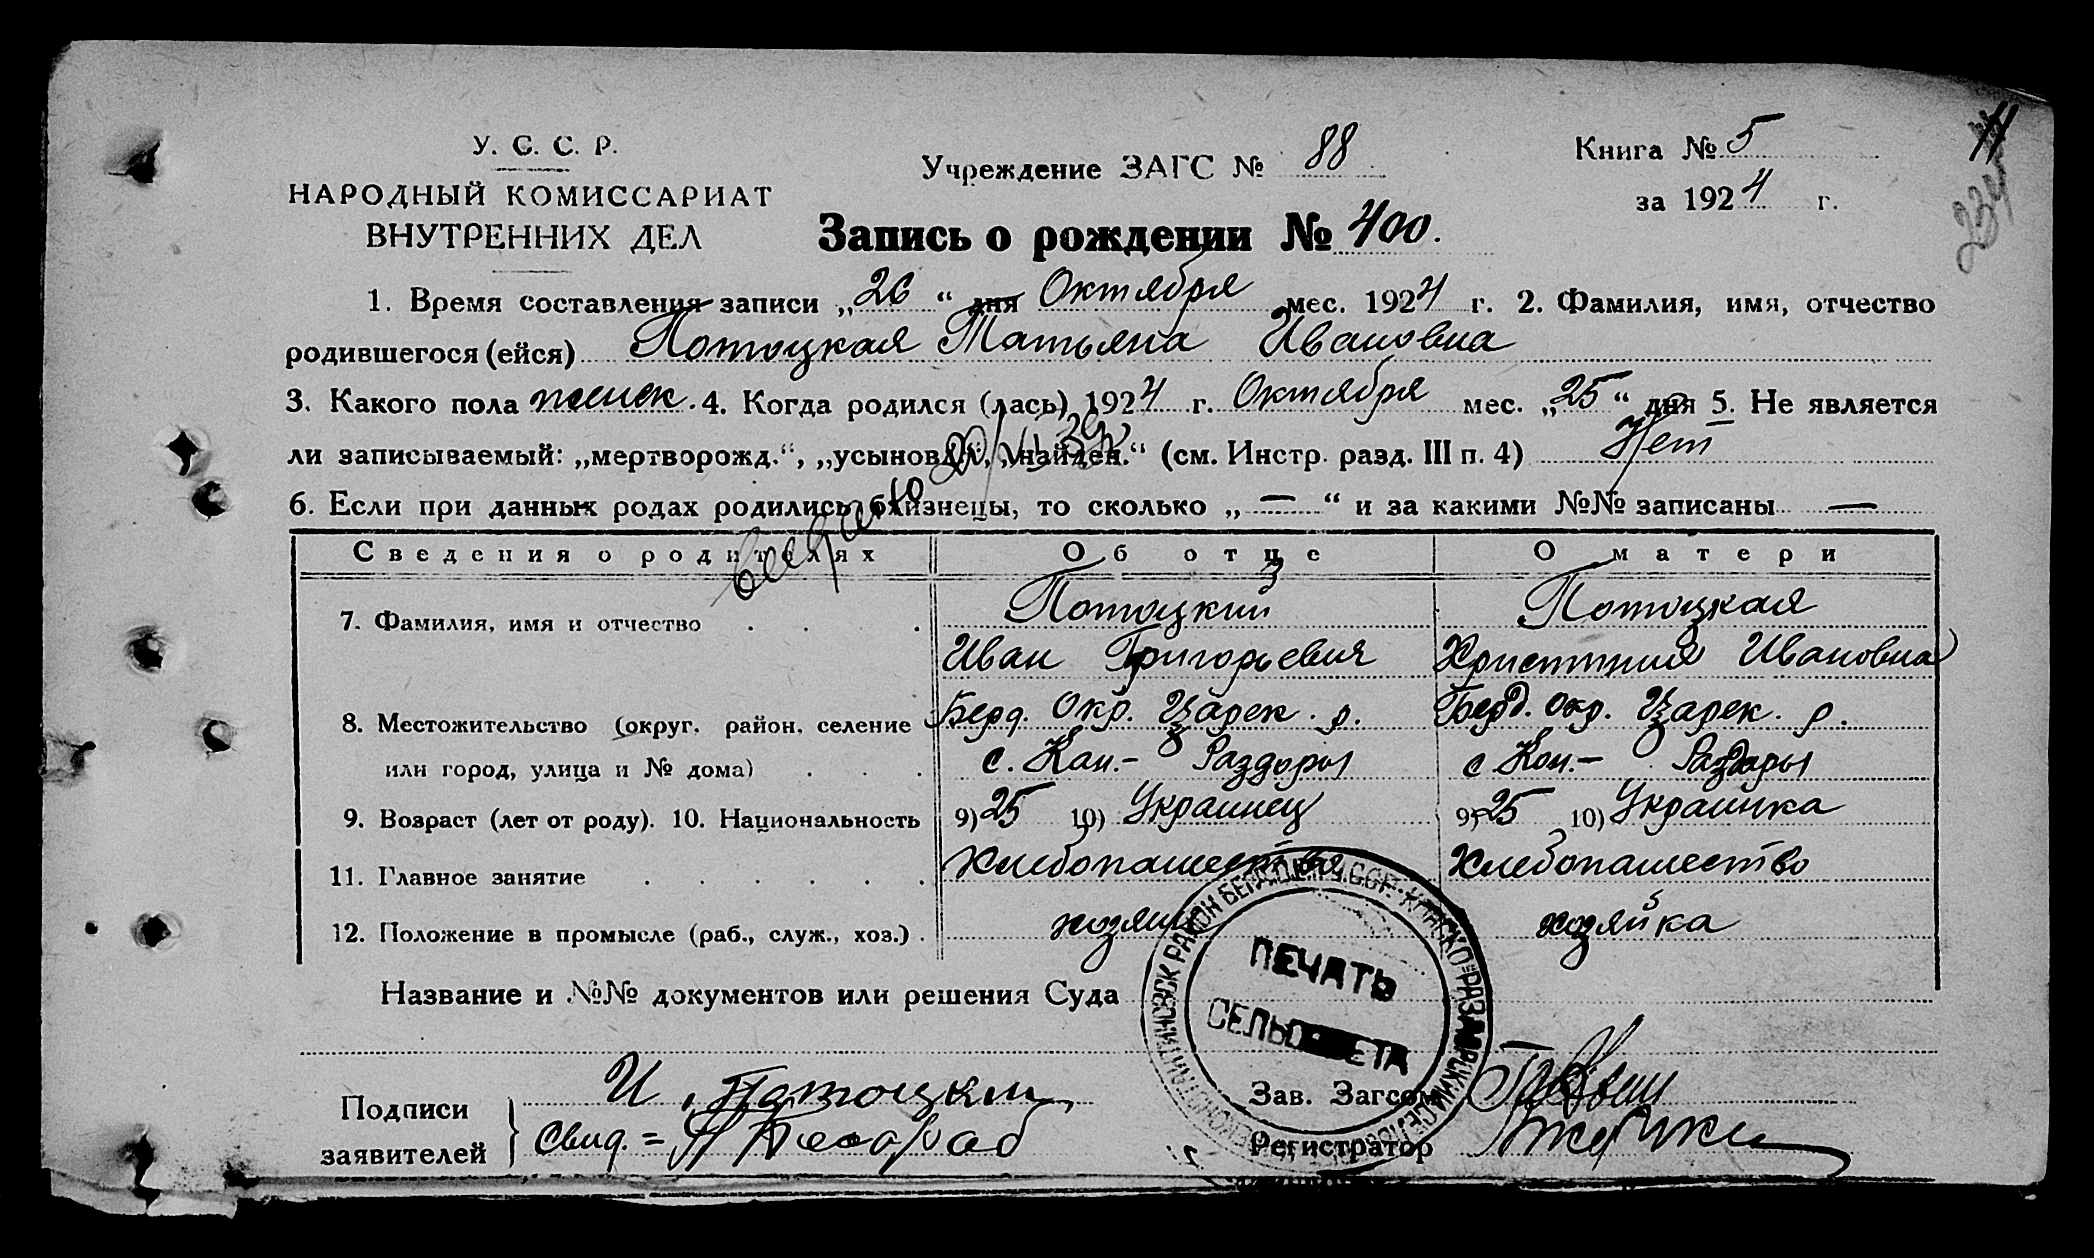 У. С. С. Р.
НАРОДНЫЙ КОМИССАРИАТ
ВНУТРЕННИХ ДЕЛ
Учреждение ЗАГС № 88
Книга № 5
за 1924 г.
234
Запись о рождении № 400.
1. Время составления записи „26“ дня Октября мес. 1924 г. 2. Фамилия, имя, отчество
родившегося (ейся) Потоцкая Татьяна Ивановна
3. Какого пола женск. 4. Когда родился (лась) 1924 г. Октября мес. „25“ дня 5. Не является
ли записываемый: „мертворожд.“, „усыновл.“, „найден.“ (см. Инстр. разд. III п. 4) Нет
6. Если при данных родах родились близнецы, то сколько „—“ и за какими №№ записаны —
Сведения о родителях Об отце О матери
7. Фамилия, имя и отчество Потоцкий Потоцкая
Иван Григорьевич Христиния Ивановна
8. Местожительство (округ, район, селение Берд. Окр. Царек. р. Берд. Окр. Царек. р.
или город, улица и № дома) с. Кон.- Раздоры с Кон.- Раздоры
9. Возраст (лет от роду). 10. Национальность 9) 25 10) Украинец 9) 25 10) Украинка
11. Главное занятие Хлебопашество Хлебопашество
12. Положение в промысле (раб., служ., хоз.) хозяин хозяйка
Название и №№ документов или решения Суда
ПЕЧАТЬ
СЕЛЬСОВЕТА
Подписи
заявителей
И. Потоцкий
Свид. =
Зав. Загсом
Регистратор